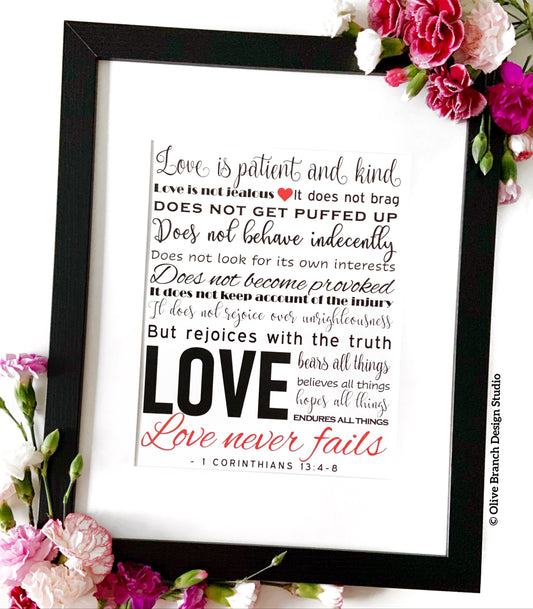 Love is patient and kind
Love is not jealous ❤ It does not brag
DOES NOT GET PUFFED UP
Does not behave indecently
Does not look for its own interests
Does not become provoked
It does not keep account of the injury
It does not rejoice over unrighteousness
But rejoices with the truth
LOVE
bears all things
believes all things
hopes all things
ENDURES ALL THINGS
Love never fails
- 1 CORINTHIANS 13:4-8
© Olive Branch Design Studio